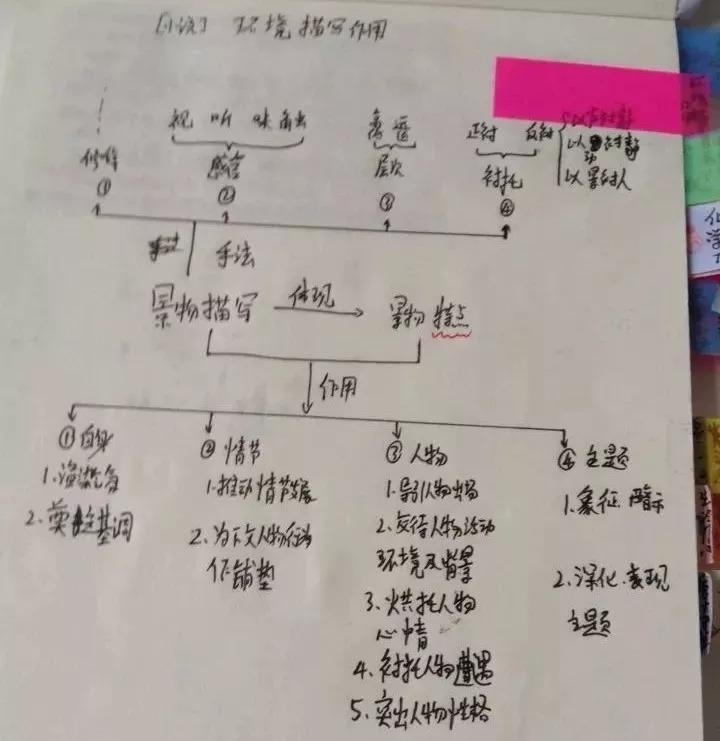 [小说] 环境描写作用
视 听 味 触
离 近
正衬 反衬
以人衬
以景衬人
修辞 感官 层次 衬托
① ② ③ ④
手法
景物描写 体现 景物 特点
作用
①自身 ②情节 ③人物 ④主题
1.渲染气氛
2.奠定基调
1.推动情节发展
2.为下文人物
作铺垫
1.导引人物出场
2.交待人物活动
环境及背景
3.烘托人物
心情
4.衬托人物遭遇
5.突出人物性格
1.象征 暗示
2.深化 表现
主题